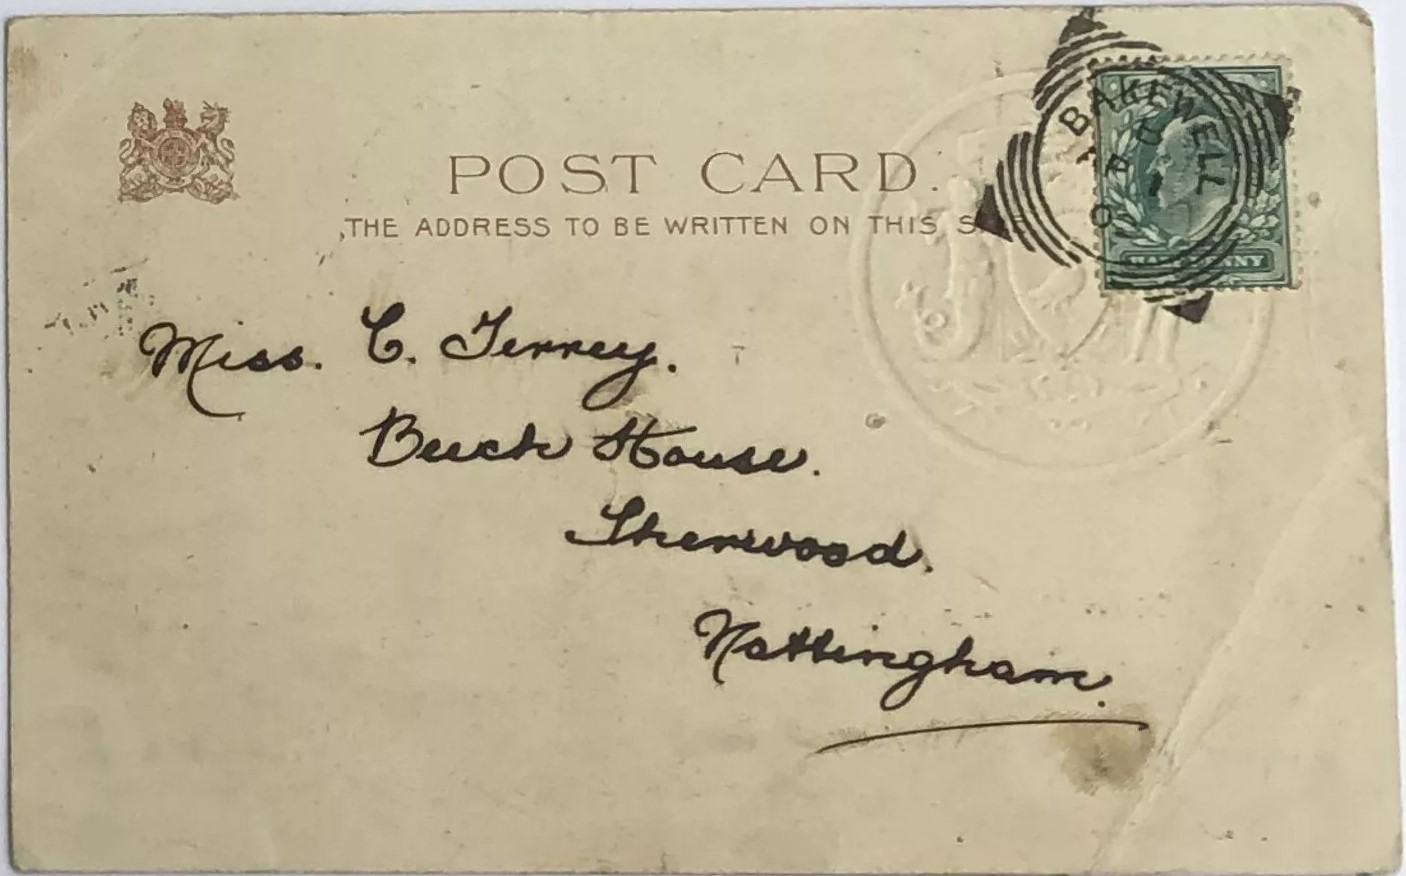 POST CARD.
THE ADDRESS TO BE WRITTEN ON THIS
BAKEWELL
Miss. C. Terrey.
Beech House.
Sherwood.
Nottingham.